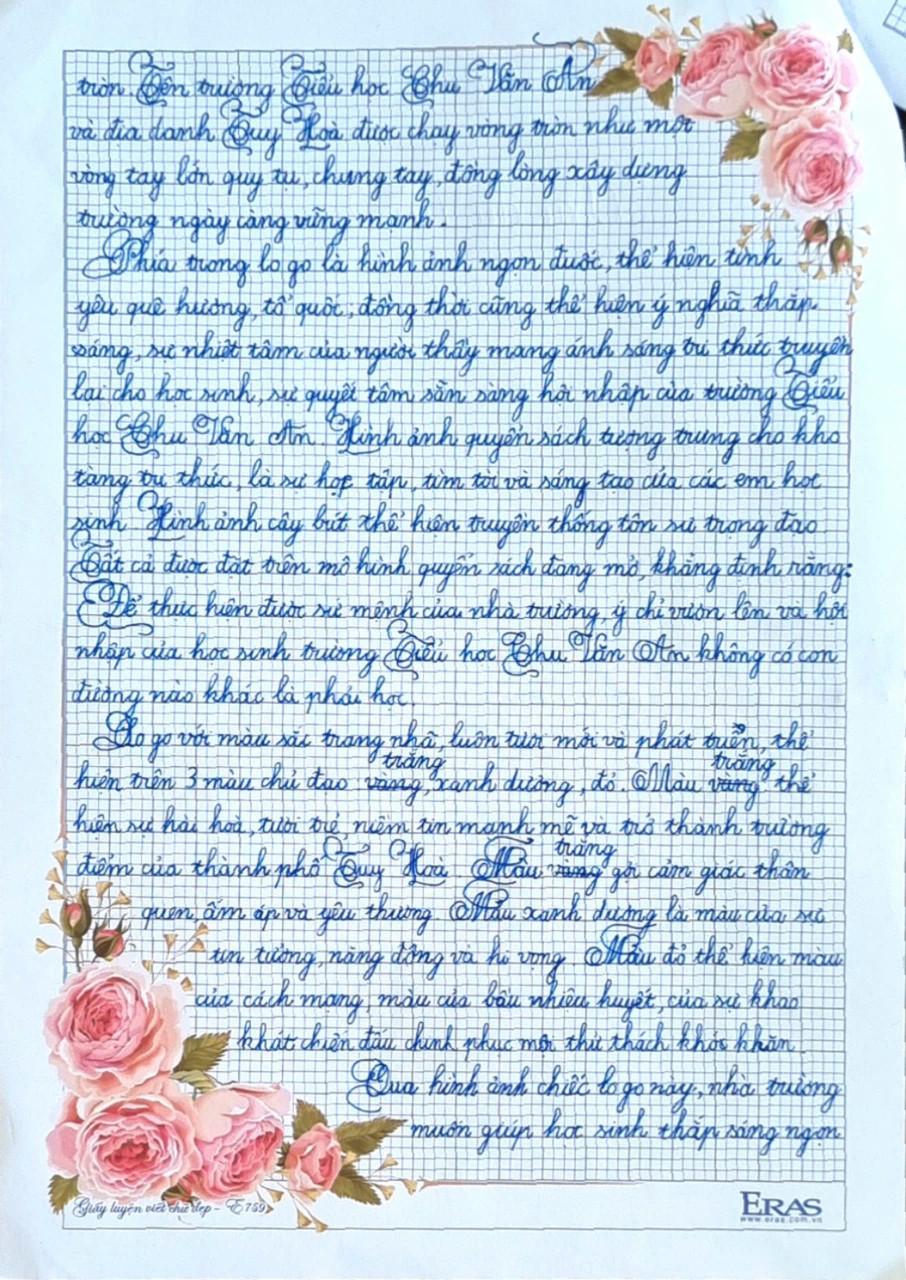 tròn. Tên trường Tiểu học Chu Văn An
và địa danh Tuy Hoà được chạy vòng tròn như một
vòng tay lớn quy tụ, chung tay, đồng lòng xây dựng
trường ngày càng vững mạnh.
Phía trong lo go là hình ảnh ngọn đuốc, thể hiện tình
yêu quê hương, tổ quốc, đồng thời cũng thể hiện ý nghĩa thắp
sáng, sự nhiệt tâm của người thầy mang ánh sáng tri thức truyền
lại cho học sinh, sự quyết tâm sẵn sàng hội nhập của trường Tiểu
học Chu Văn An. Hình ảnh quyển sách tượng trưng cho kho
tàng tri thức, là sự học tập, tìm tòi và sáng tạo của các em học
sinh. Hình ảnh cây bút thể hiện truyền thống tôn sư trọng đạo.
Tất cả được đặt trên mô hình quyển sách đang mở, khẳng định rằng:
Để thực hiện được sứ mệnh của nhà trường, ý chí vươn lên và hội
nhập của học sinh trường Tiểu học Chu Văn An không có con
đường nào khác là phải học.
Lo go với màu sắc trang nhã, luôn tươi mới và phát triển, thể
trắng trắng
hiện trên 3 màu chủ đạo vàng, xanh dương, đỏ. Màu vàng thể
hiện sự hài hoà, tươi trẻ, niềm tin mạnh mẽ và trở thành trường
trắng
điểm của thành phố Tuy Hoà. Màu vàng gợi cảm giác thân
quen, ấm áp và yêu thương. Màu xanh dương là màu của sự
tin tưởng, năng động và hi vọng. Màu đỏ thể hiện màu
của cách mạng, màu của bầu nhiêu huyết, của sự khao
khát chiến đấu chinh phục mọi thử thách khó khăn.
Qua hình ảnh chiếc lo go này, nhà trường
muốn giúp học sinh thắp sáng ngọn
Giấy luyện viết chữ đẹp - E759
ERAS
www.eras.com.vn